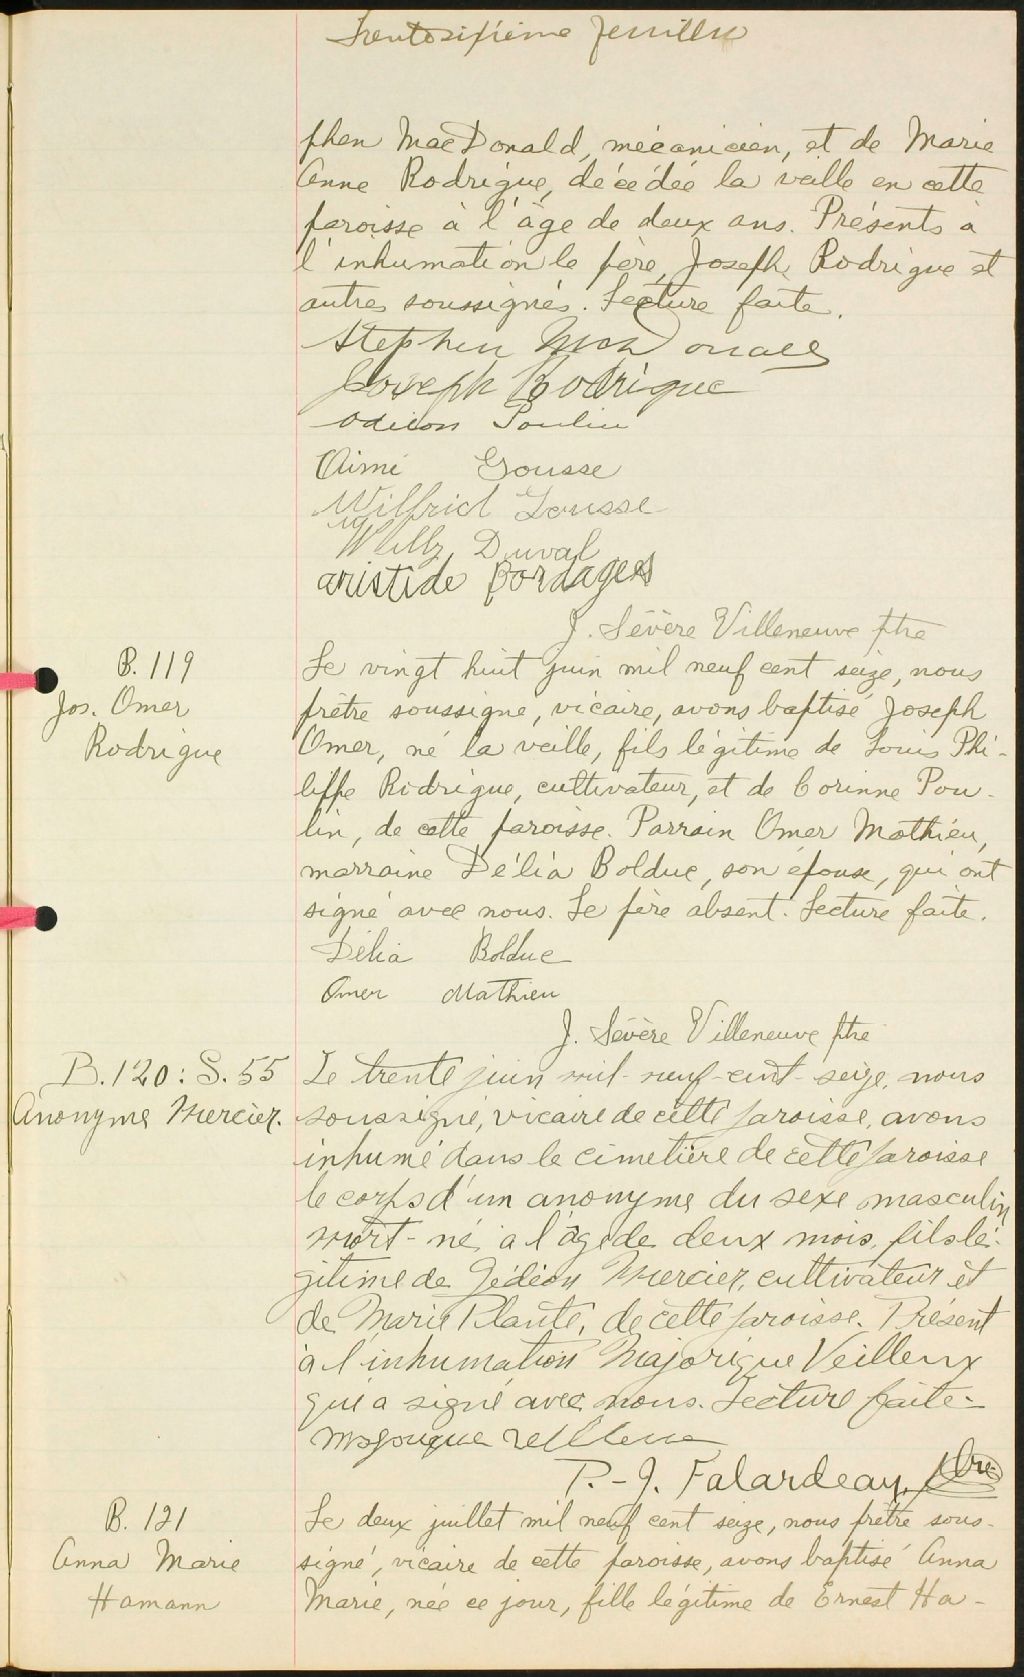 Trentesixième feuillet
phen MacDonald, mécanicien, et de Marie
Anne Rodrigue, décédée la veille en cette
paroisse à l'âge de deux ans. Présents à
l'inhumation le père, Joseph Rodrigue et
autres soussignés. Lecture faite.
Stephen MacDonald
Joseph Rodrigue
Odilon Poulin
Aimé Gousse
Wilfrid Gousse
Willy Duval
aristide Bordages
J. Sévère Villeneuve ptre
B. 119
Jos. Omer
Rodrigue
Le vingt huit juin mil neuf cent seize, nous
prêtre soussigné, vicaire, avons baptisé Joseph
Omer, né la veille, fils légitime de Louis Phi-
lippe Rodrigue, cultivateur, et de Corinne Pou-
lin, de cette paroisse. Parrain Omer Mathieu,
marraine Délia Bolduc, son épouse, qui ont
signé avec nous. Le père absent. Lecture faite.
Délia Bolduc
Omer Mathieu
J. Sévère Villeneuve ptre
B. 120 : S. 55
Anonyme Mercier.
Le trente juin mil-neuf-cent-seize, nous
soussigné, vicaire de cette paroisse, avons
inhumé dans le cimetière de cette paroisse
le corps d'un anonyme du sexe masculin
mort-né, a l'âge de deux mois, fils lé-
gitime de Gédéon Mercier, cultivateur et
de Marie Plante, de cette paroisse. Présent
à l'inhumation Majorique Veilleux
qui a signé avec nous. Lecture faite.
P.-J. Falardeau, ptre
B. 121
Anna Marie
Hamann
Le deux juillet mil neuf cent seize, nous prêtre sous-
signé, vicaire de cette paroisse, avons baptisé Anna
Marie, née ce jour, fille légitime de Ernest Ha-